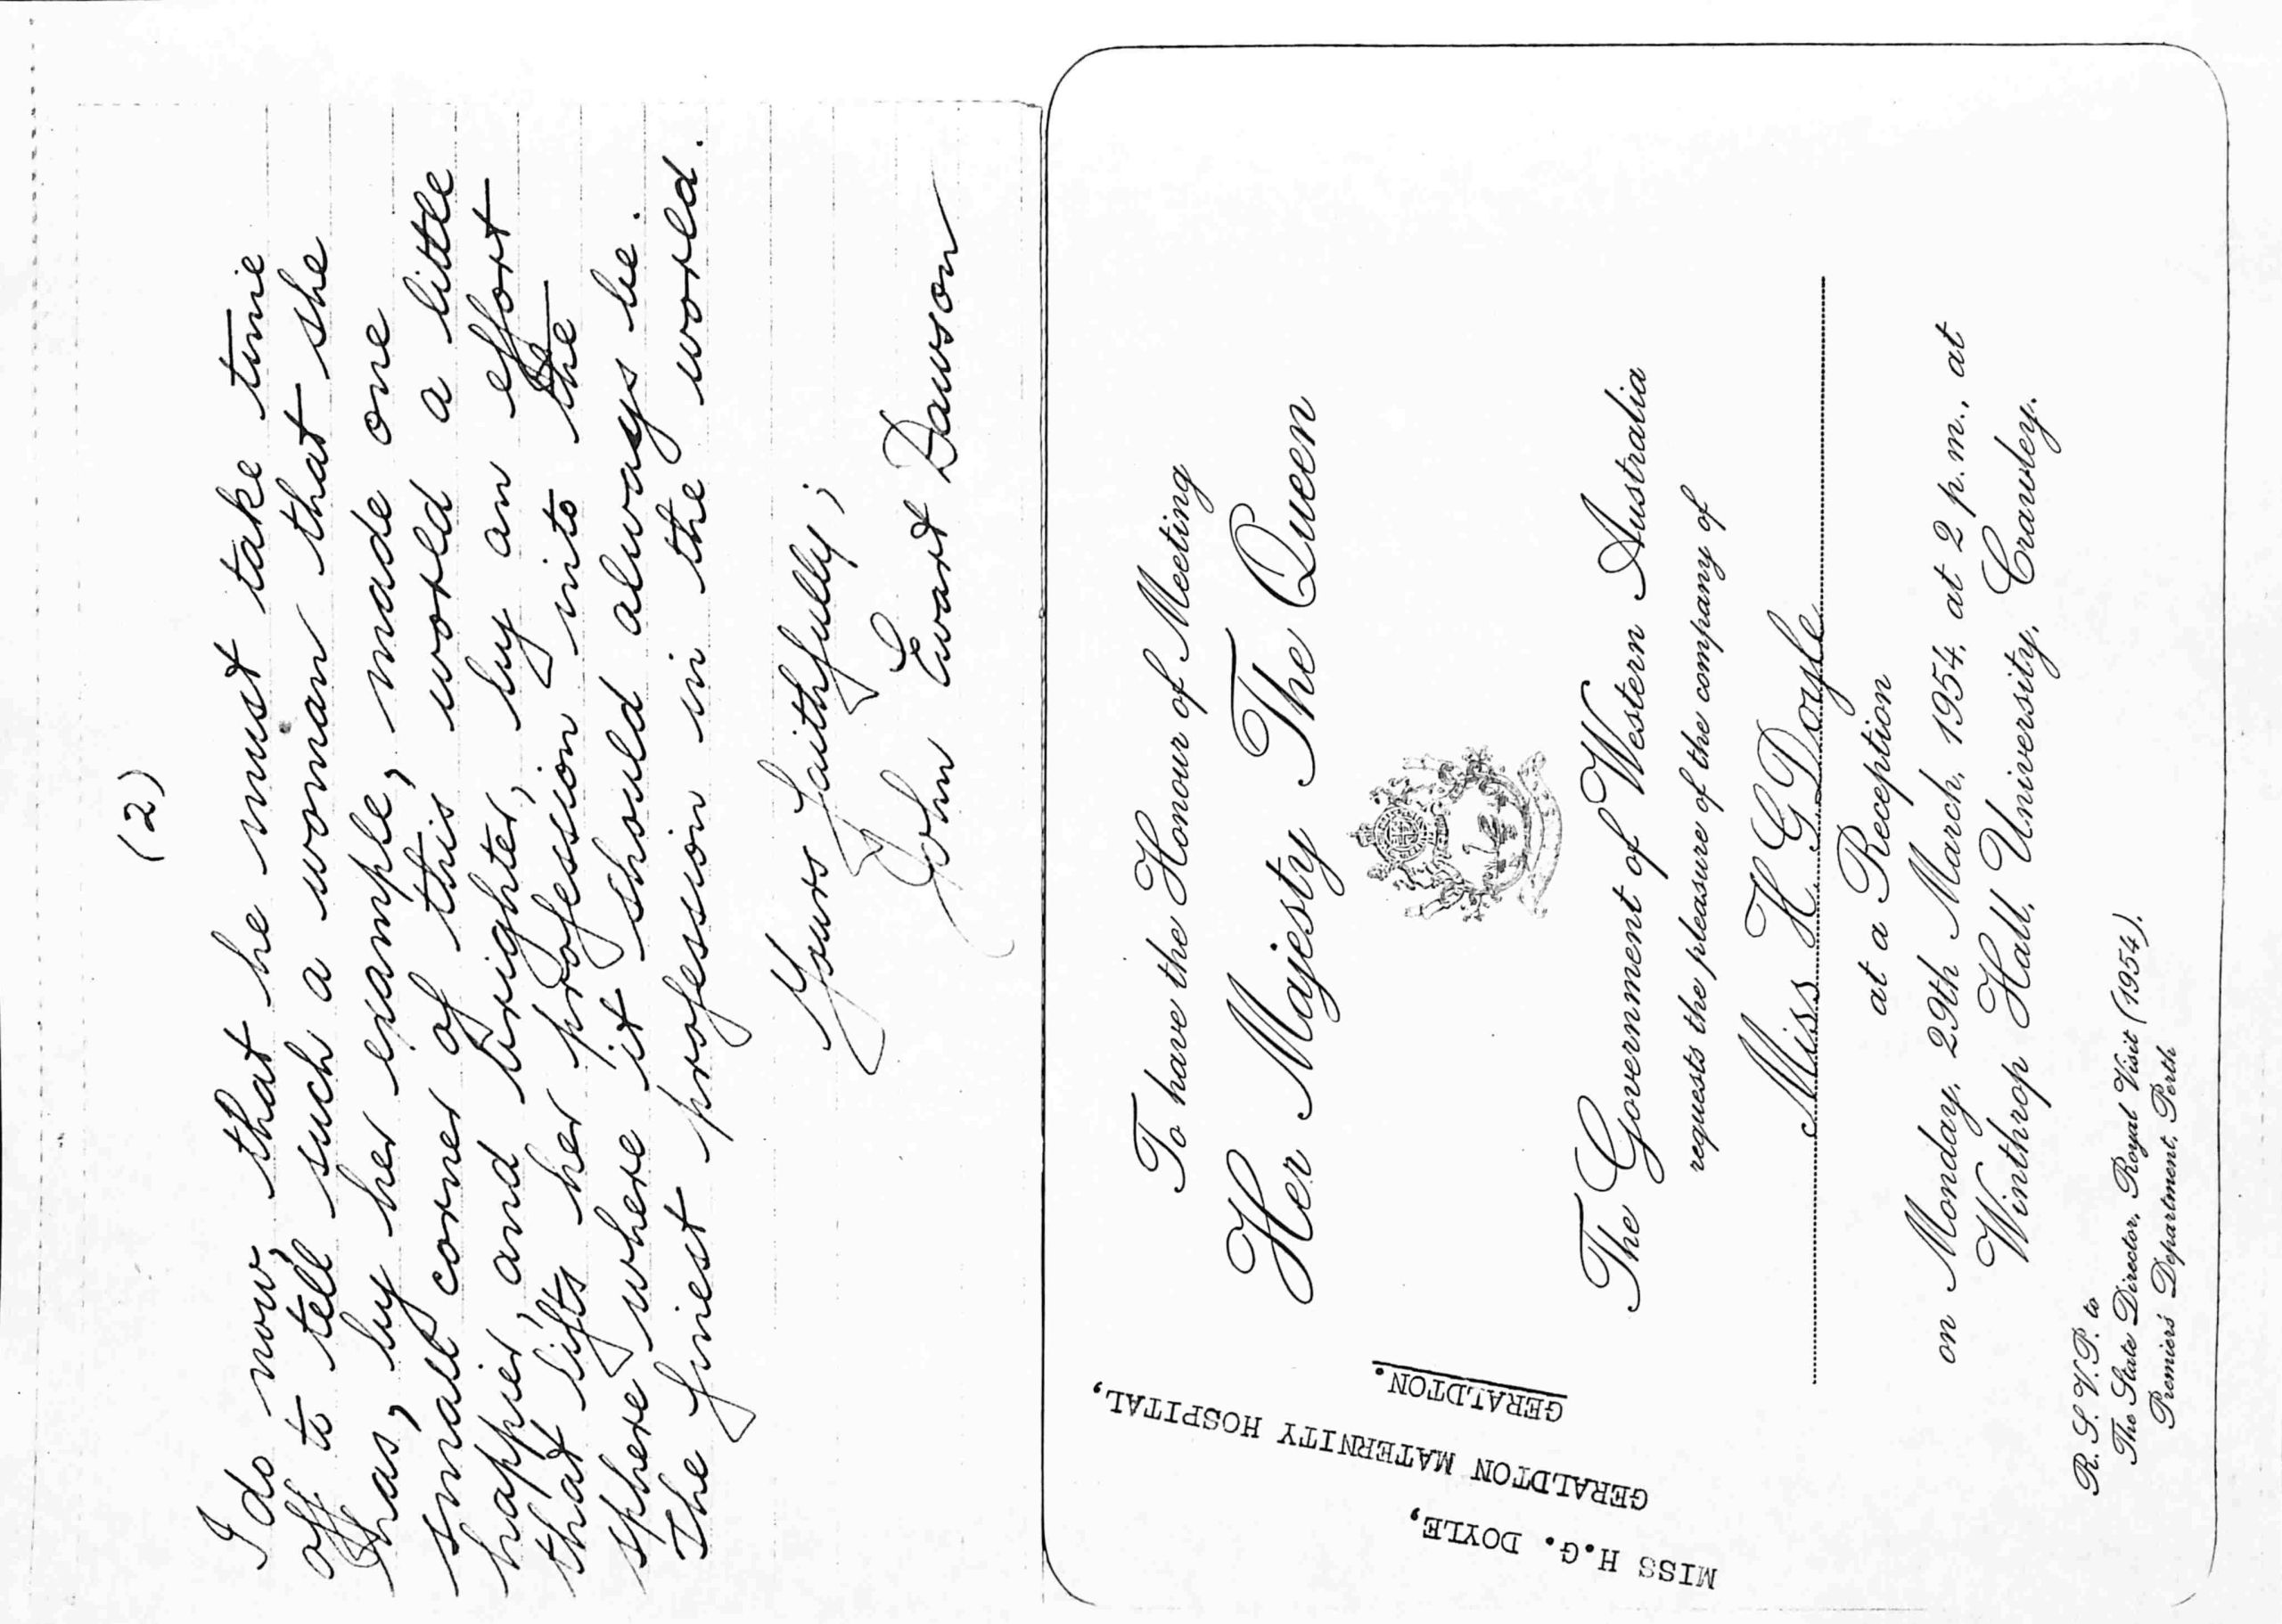 (2)
I do now, that he must take time
off to tell such a woman that she
has, by her example, made one
small corner of this world a little
happier, and brighter, by an effort
that lifts her profession into the
sphere where it should always be.
The finest profession in the world.
Yours Faithfully;
John Ewart Dawson
To have the Honour of Meeting
Her Majesty The Queen
The Government of Western Australia
requests the pleasure of the company of
Miss H G Doyle
at a Reception
on Monday, 29th March, 1954, at 2 p.m., at
Winthrop Hall, University, Crawley.
R.S.V.P. to
The State Director, Royal Visit (1954),
Premier's Department, Perth
MISS H.G. DOYLE,
GERALDTON MATERNITY HOSPITAL,
GERALDTON.